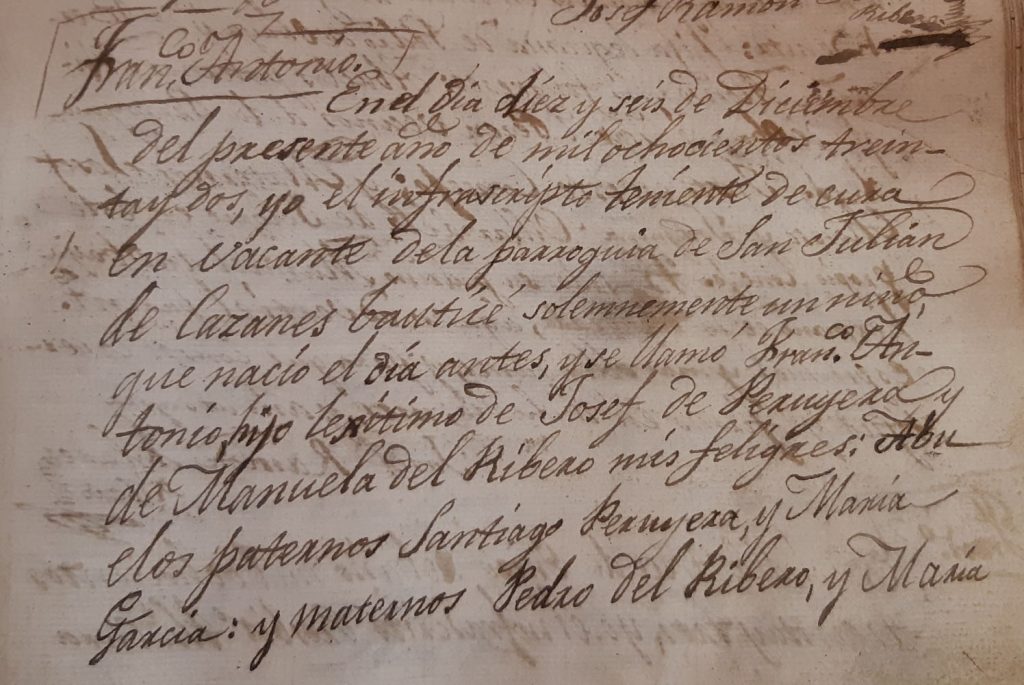 Josef Ramón
Ribero
Fran.co Antonio.
En el día diez y seis de Diciembre
del presente año de mil ochocientos trein-
tay dos, yo el infrascripto teniente de cura
en vacante dela parroquia de San Julián
de Cazanes bauticé solemnemente un niño,
que nació el día antes, y se llamó Fran.co An-
tonio, hijo lexítimo de Josef de Peruyera y
de Manuela del Ribero mis feligres: Abu
elos paternos Santiago Peruyera, y María
García: y maternos Pedro del Ribero, y María